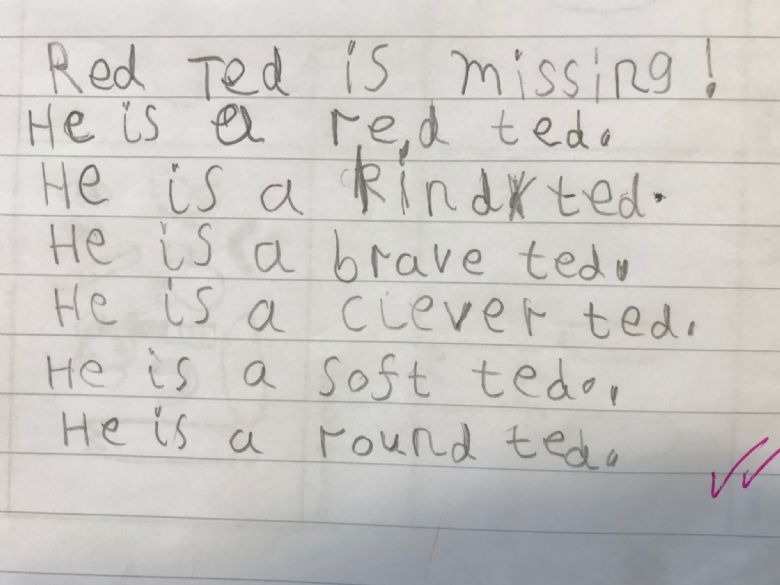 Red Ted is missing!
He is a red ted.
He is a kind ted.
He is a brave ted.
He is a clever ted.
He is a soft ted.
He is a round ted.